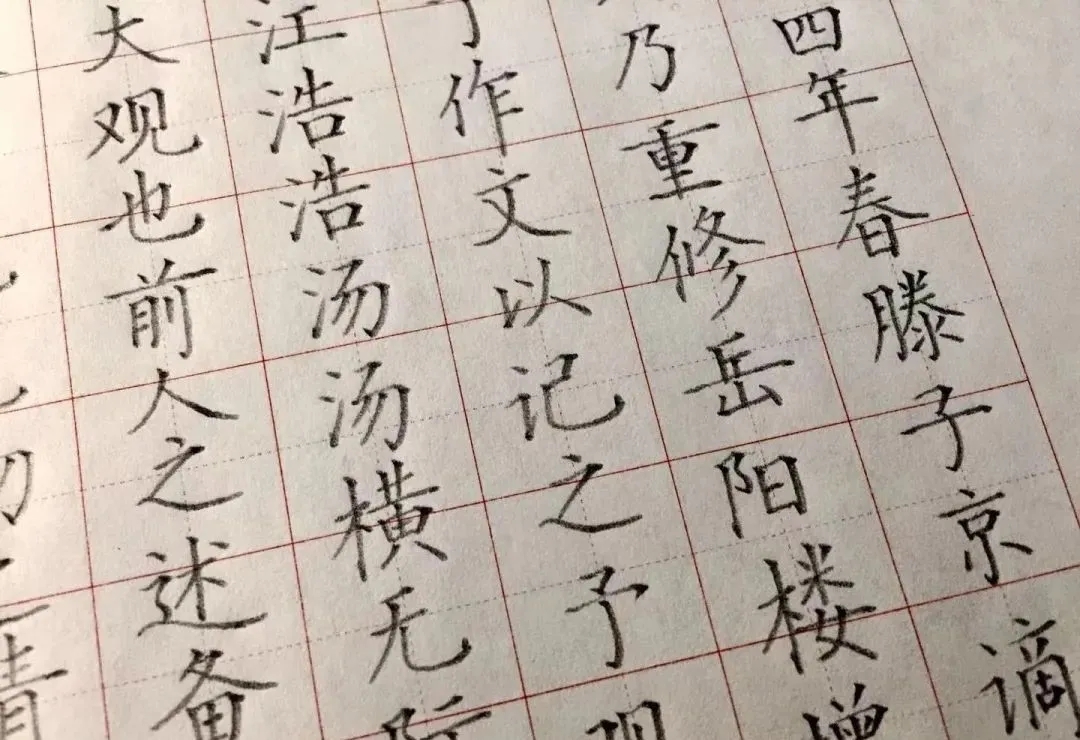 四年春滕子京谪
乃重修岳阳楼增
作文以记之予观
江浩浩汤汤横无际
大观也前人之述备
情